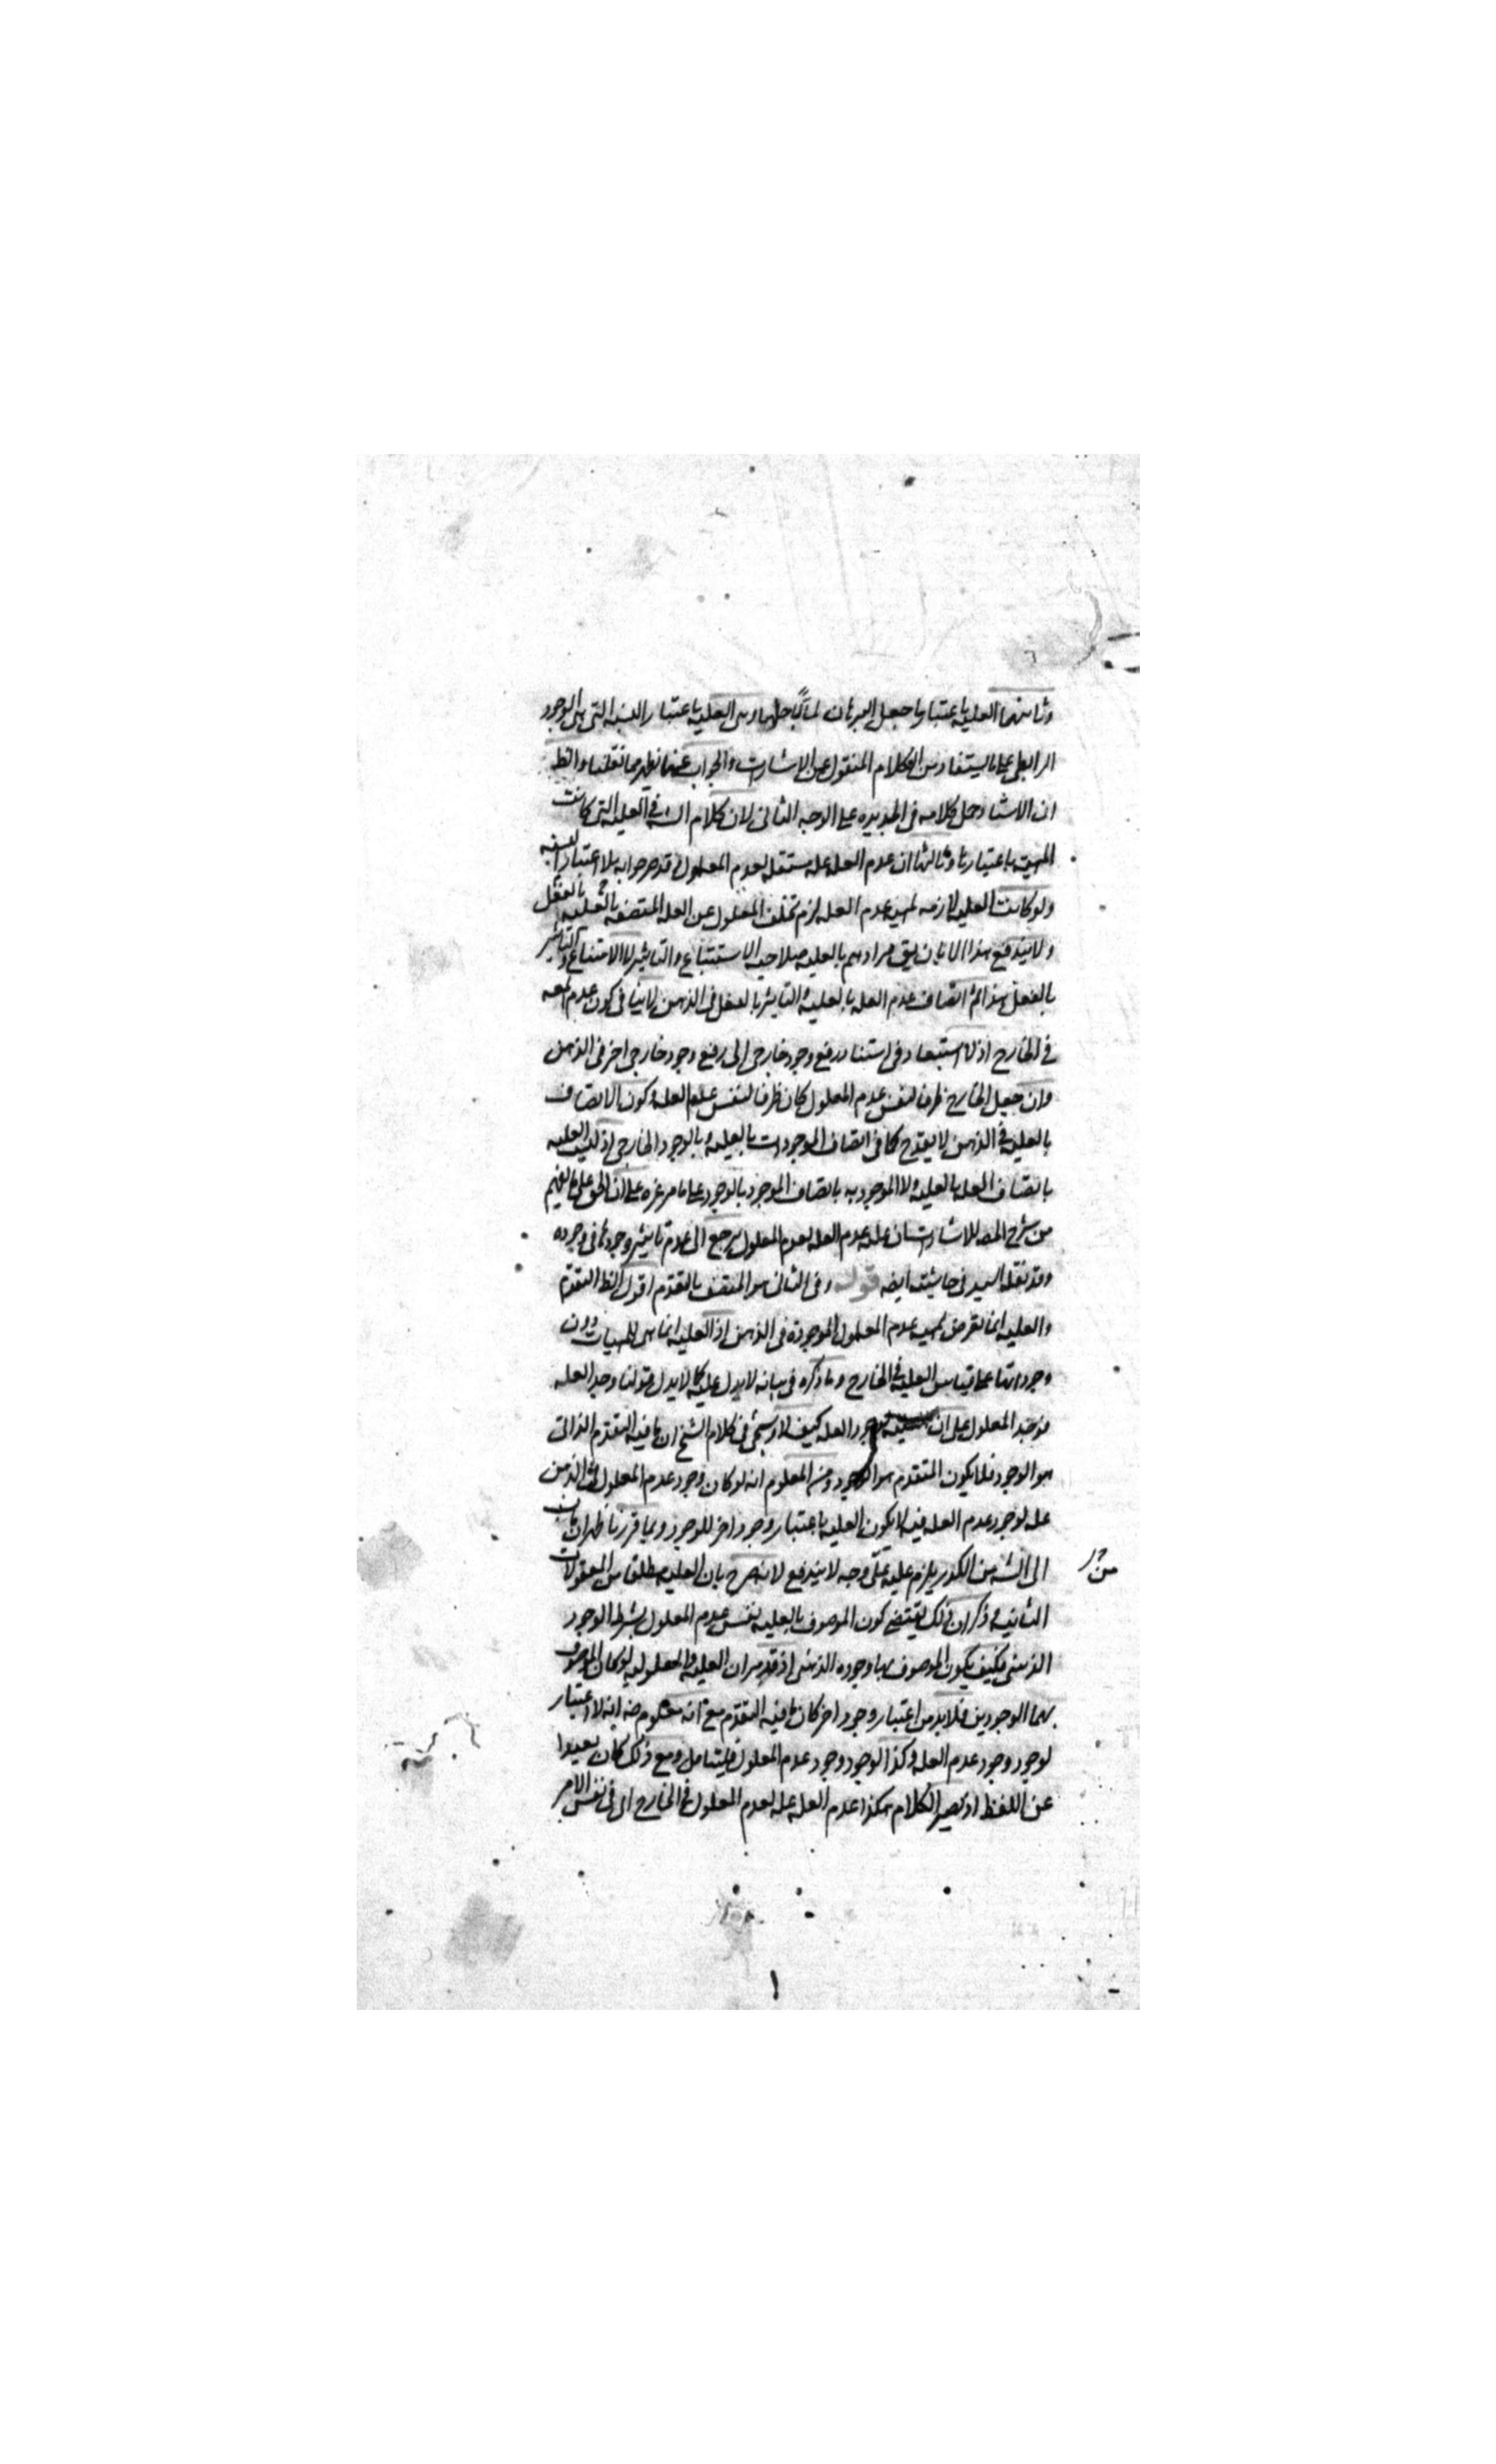 وثانيهما العلية باعتبار ما جعل البرهان لميا باجلها وهى العلية باعتبار النسبة التى هى الوجود
الرابطى على ما يستفاد من الكلام المنقول عن الاشارات والجواب عنها يظهر مما نقلنا والظ
ان الاستاد حمل كلامه فى الجديده على الوجه الثانى لان كلام الشه فى العلية التى كانت
المهية باعتبارها وثالثها ان عدم العله عله مستقله لعدم المعلول قد صرحوا به بلا اعتبار
ولو كانت العليه لازمه لمهية عدم العله لزم تخلف المعلول عن العله المتصفه بالعليه بالفعل
ولا يندفع هذا الا بان يق مرادهم بالعليه صلاحية الاستتباع والتاثير لا الاستتباع والتاثير
بالفعل هذا ثم اتصاف عدم العله بالعليه والتاثير بالفعل فى الذهن لا ينافى كون عدم
فى الخارج اذ لا استبعاد فى استناد رفع وجود خارجى الى رفع وجود خارجى اخر فى الذهن
وان جعل الخارج ظرفا لنفس عدم المعلول كان ظرفا لنفس عدم العله وكون الاتصاف
بالعليه فى الذهن لا يقدح كما فى اتصاف الموجودات بالعليه وبالوجود الخارجى اذ ليست العليه
باتصاف العله بالعليه ولا الموجوديه باتصاف الموجود بالوجود على ما مر غره على ان الحق على ما يفهم
من شرح المصه للاشارات ان علية عدم العله لعدم المعلول يرجع الى عدم تاثير وجودها فى وجوده
وقد نقله السيد فى حاشيته ايضه قوله وفى الثانى هو المتصف بالتقدم اقول الظ التقدم
والعليه انما تعرض لمهية عدم المعلول الموجودة فى الذهن اذ العليه انما هى للمهيات دون
وجوداتها على قياس العليه فى الخارج وما ذكره فى بيانه لا يدل عليه كما لا يدل قولنا وجد العله
فوجد المعلول على ان وجود العله كيف لا وسيجئ فى كلام الشيخ ان ما فيه التقدم الذاتى
هو الوجود فلا يكون المتقدم هو الوجود ومن المعلوم انه لو كان وجود عدم المعلول فى الذهن
عله لوجود عدم العله فيه لا يكون العليه باعتبار وجود اخر للوجود وبما قررنا ظهر ان ما نسب
الى الشه من الكدور يلزم عليه على وجه لا يندفع لانه صرح بان العليه مطلقا من المعقولات
الثانيه وذكر ان ذلك يقتضى كون الموصوف بالعليه نفس عدم المعلول بشرط الوجود
الذهنى فكيف يكون الموصوف بها وجوده الذهنى اذ قد مر ان العليه والمعلوليه لو كان الموصوف
بهما الوجودين فلا بد من اعتبار وجود اخر كان ما فيه التقدم مع انه معلوم ضه انه لا اعتبار
لوجود وجود عدم العله وكذا لوجود وجود عدم المعلول فليتامل ومع ذلك كان بعيدا
عن اللفظ اذ يصير الكلام هكذا عدم العله عله لعدم المعلول فى الخارج اى فى نفس الامر